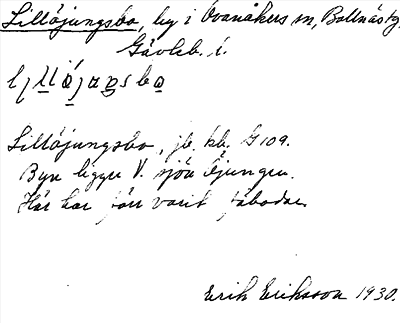 Lillöjungsbo, by i Ovanåkers sn, Bollnästg.
Gävleb. l.
Lillöjungsbo, jb. kb. G 109.
Byn ligger V. sjön Öjungen.
Här har förr varit fäbodar.
Erik Eriksson 1930.